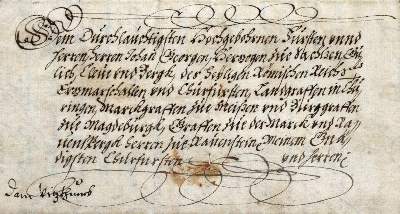 Dem Durchlauchtigsten Hochgebohrnen Fürsten unnd
Herren Herren Johan Georgen, Herzogen zue Sachsen, Gü-
lich, Cleve und Bergk, des Heyligen Römischen Reichs
Ertzmarschallen und Churfürsten, Landgraffen in Dü-
ringen, Marckgraffen zue Meißen und Burggraffen
zue Magdeburgk, Graffen zue der Marck und Ra-
vensbergk, Herren zue Ravenstein, Meinem Gnä-
digsten Churfürsten und Herren